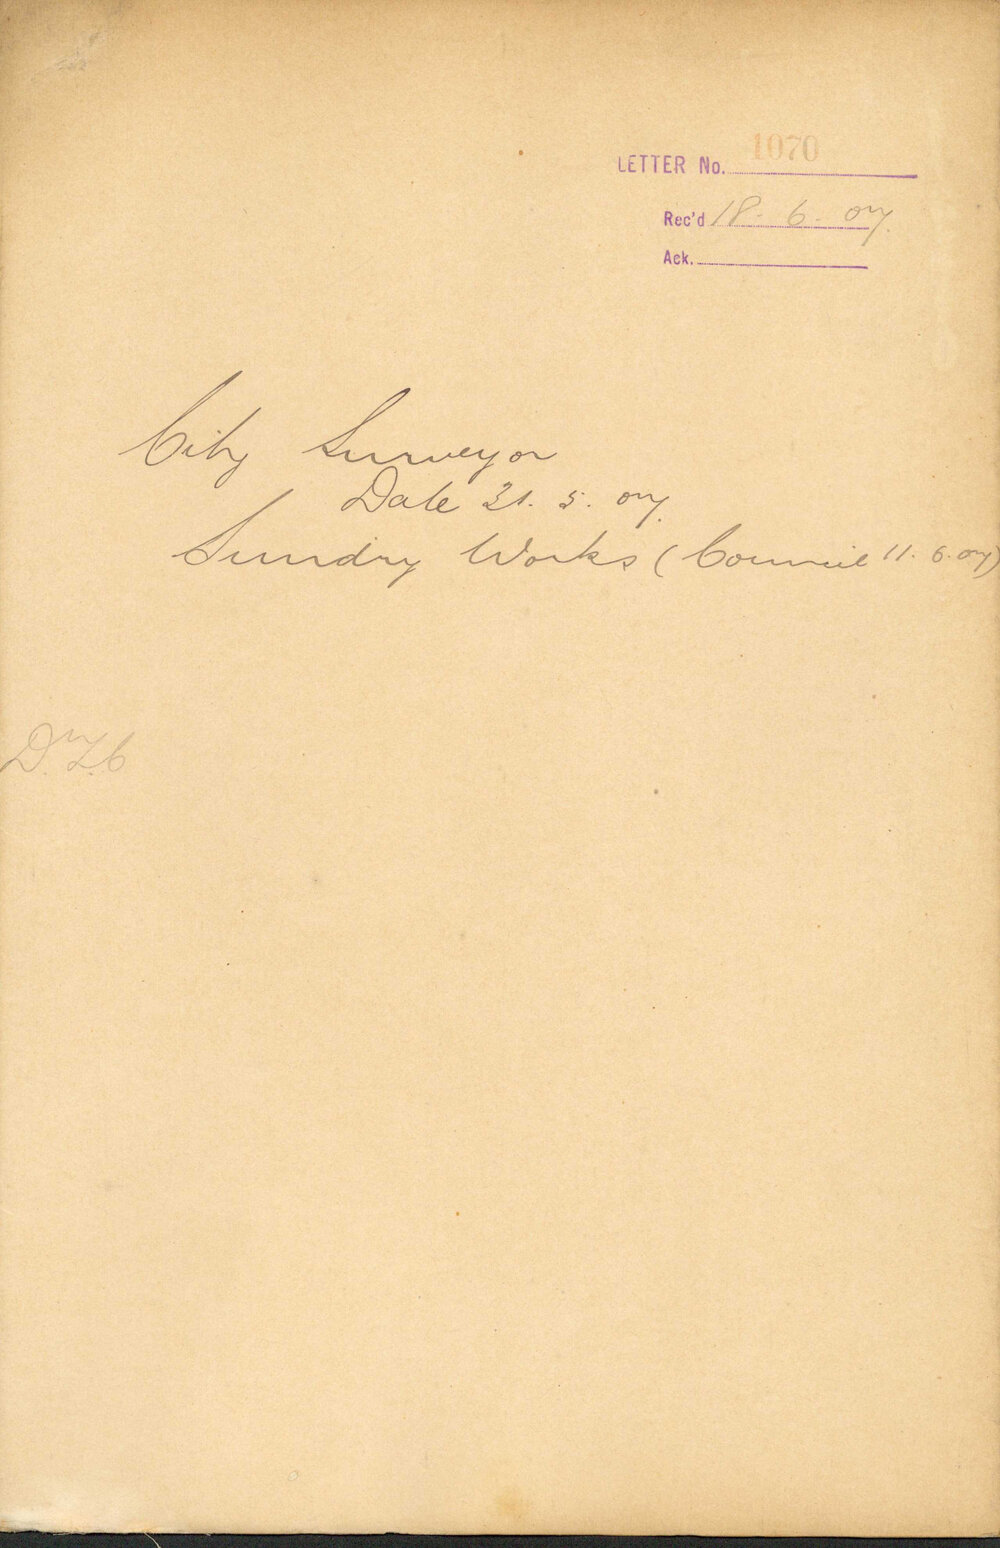 LETTER No. 1070
Rec'd 18. 6. 07.
Ack.
City Surveyor
Date 31. 5. 07.
Sundry Works (Council 11. 6. 07)